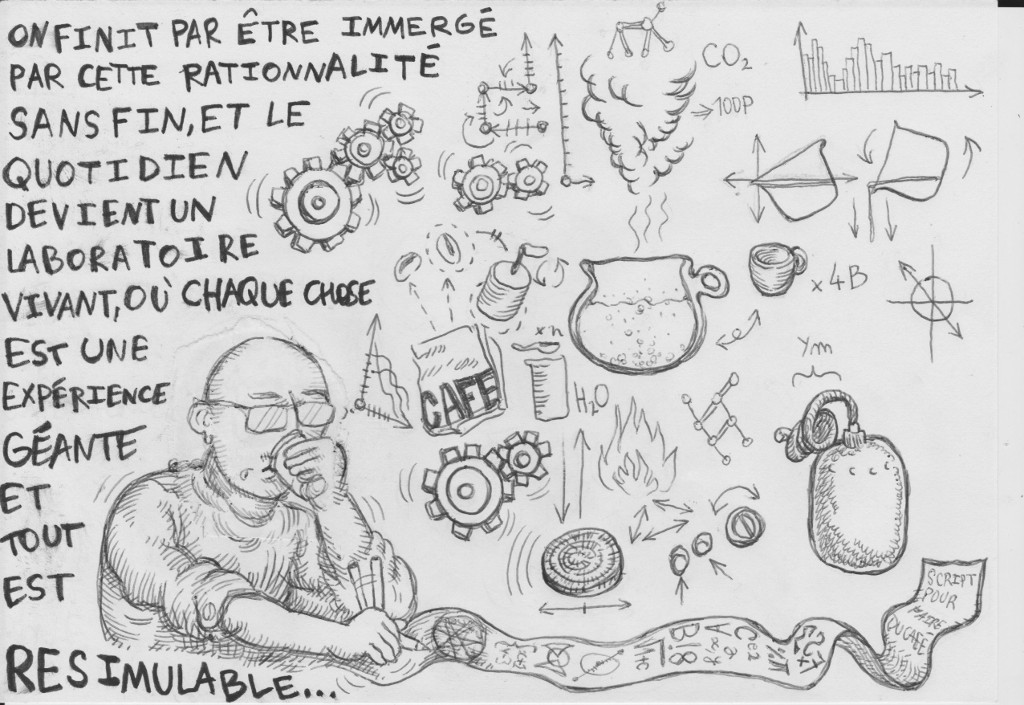 ON FINIT PAR ÊTRE IMMERGÉ
PAR CETTE RATIONNALITÉ
SANS FIN, ET LE
QUOTIDIEN
DEVIENT UN
LABORATOIRE
VIVANT, OÙ CHAQUE CHOSE
EST UNE
EXPÉRIENCE
GÉANTE
ET
TOUT
EST
RESIMULABLE...
CO₂
100P
x4B
xn
CAFE
H₂O
Ym
SCRIPT
POUR
FAIRE
DU CAFÉ